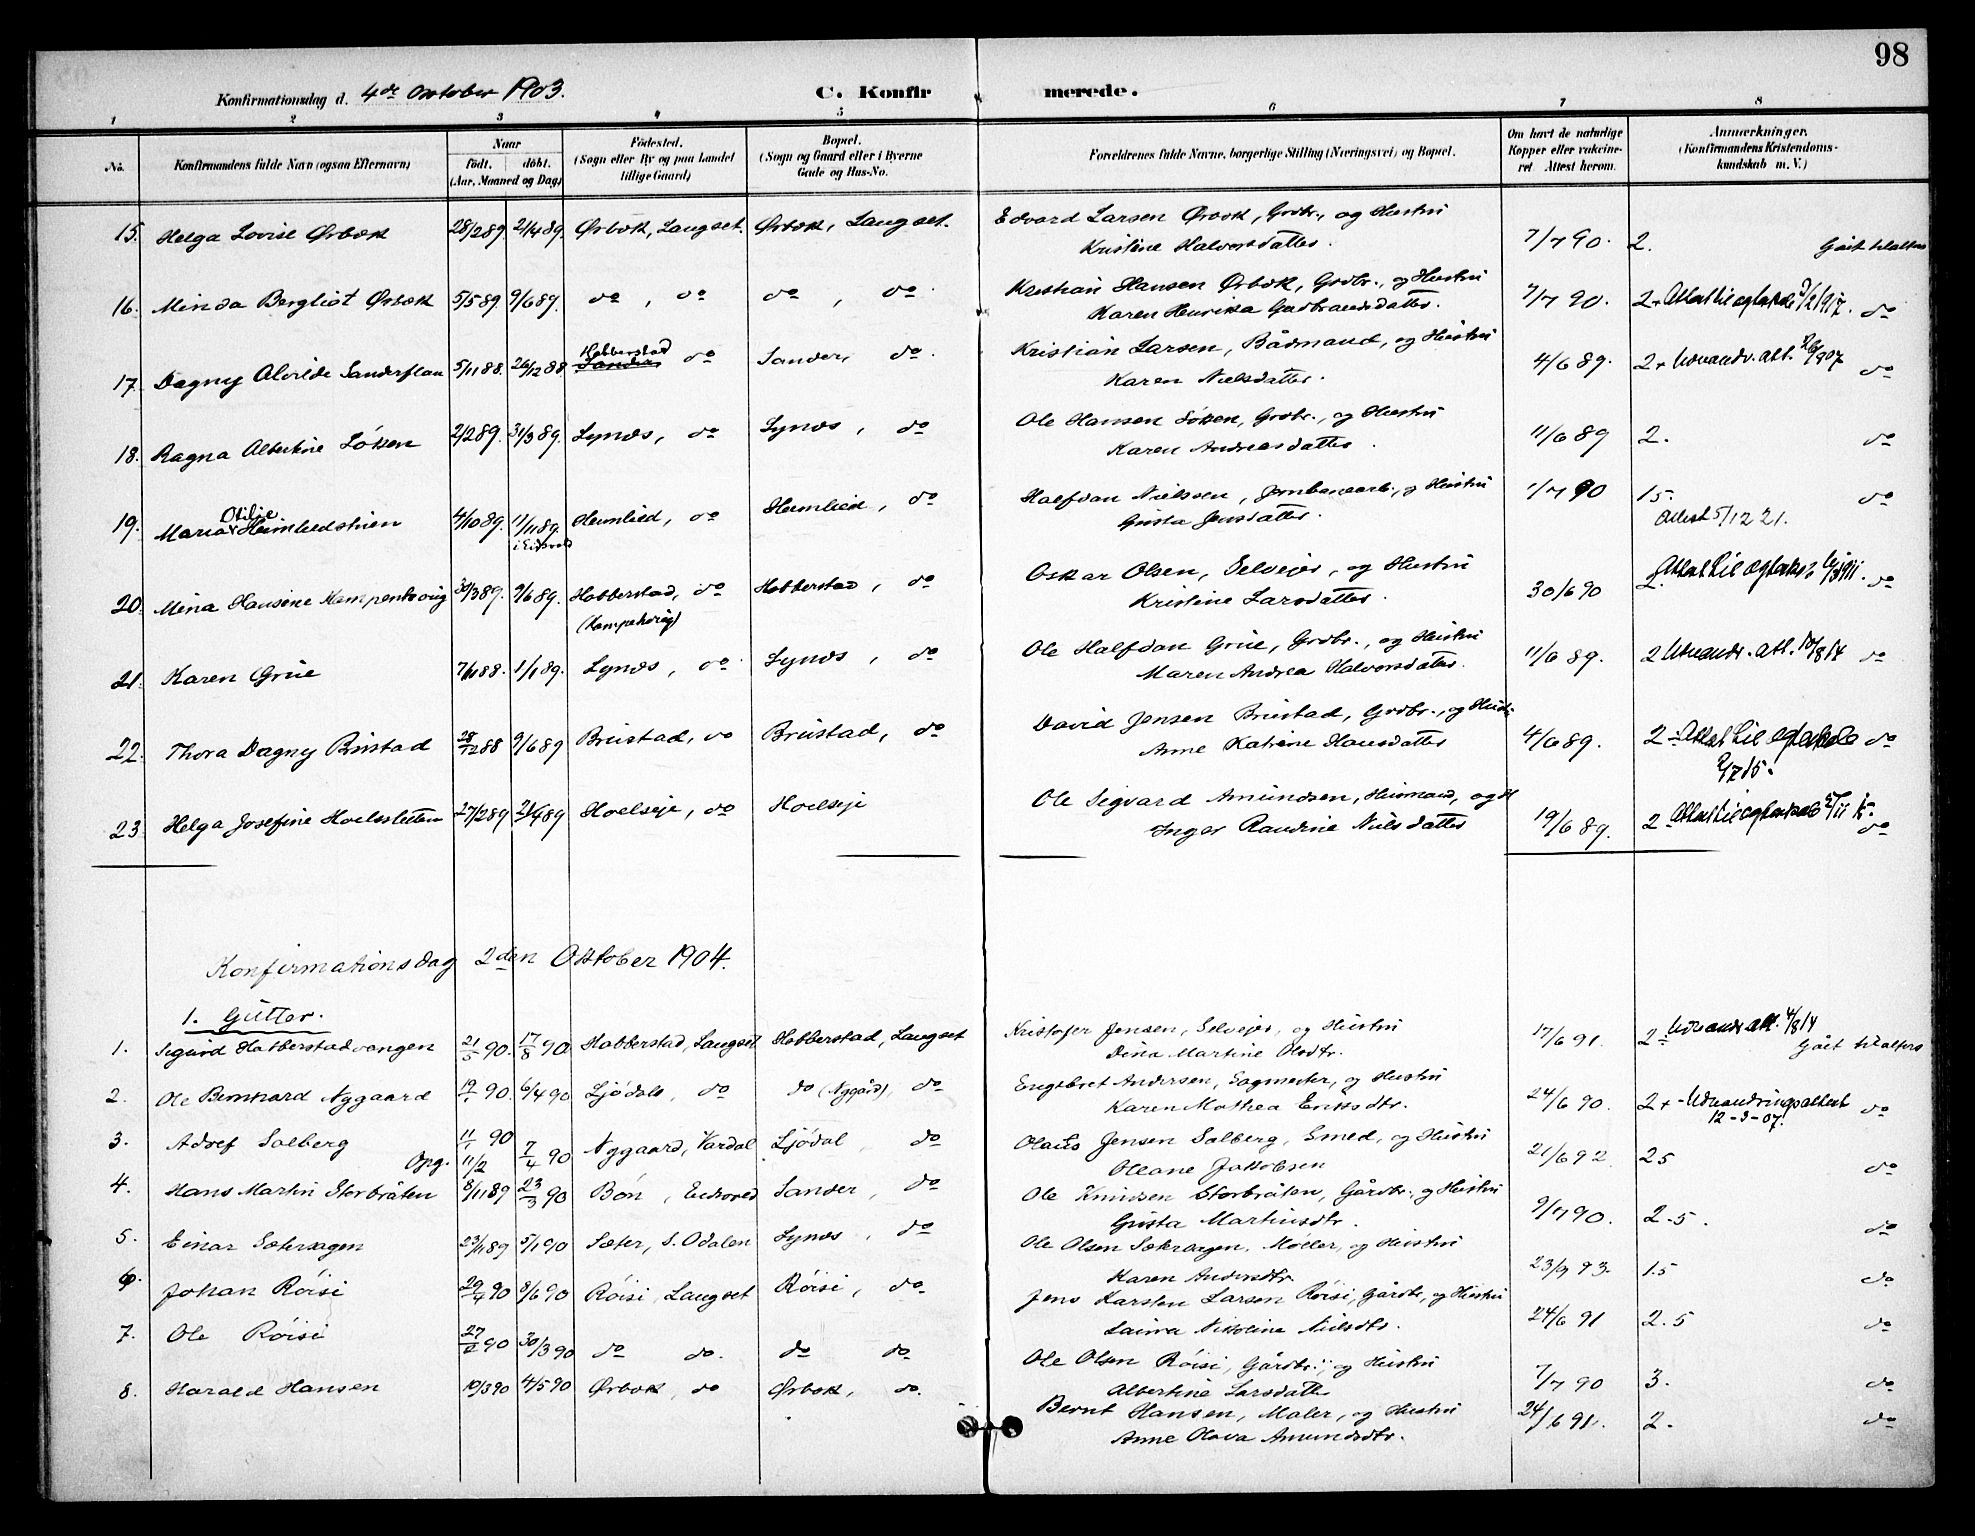 98
Konfirmationsdag d. 4de Oktober 1903. C. Konfirmerede.
1 2 3 4 5 6 7 8
No. Konfirmandens fulde Navn (ogsaa Efternavn) Naar født. døbt. (Aar, Maaned og Dag) Fødested. (Sogn eller By og paa Landet tillige Gaard) Bopæl. (Sogn og Gaard eller i Byerne Gade og Hus-No. Forældrenes fulde Navne, borgerlige Stilling (Næringsvei) og Bopæl. Om havt de naturlige Kopper eller vakcineret Attest herom. Anmærkninger. (Konfirmandens Kristendomskundskab m. V.)
15. Helga Lovise Ørbæk 28/2 89 21/4 89. Ørbæk, Langset. Ørbæk, Langset. Edvard Larsen Ørbæk, Grdbr., og Hustru
Kristine Halvorsdatter. 7/7 90. 2. Gået til alters
16. Minda Bergliot Ørbæk 5/5 89 9/6 89. do, do do, do Kristian Hansen Ørbæk, Grdbr., og Hustru
Karen Henrikka Gudbrandsdatter. 7/7 90. 2+ Attest til egteskab 3/2 1917. do
17. Dagny Alvilde Sanderflau 5/11 88. 26/12 88 Habberstad Sander do Sander, do. Kristian Larsen, Bådmand, og Hustru
Karen Nielsdatter. 4/6 89. 2+ Udvandr. att. 1907 do
18. Ragna Albertine Løken 2/2 89. 31/3 89. Lynæs, do Lynæs, do Ole Hansen Løken, Grdbr., og Hustru
Karen Andreasdatter. 11/6 89 2. do
19. Maria Otilie Heimliedstuen 4/10 89. 17/11 89. i Eidsvold Heimlied, do Heimlied, do Halfdan Nielssen, Jernbanearb., og Hustru
Gusta Jensdatter. 1/7 90 1.5. do
Attest 5/12 21.
20. Mina Hansine Kampenhoug 30/3 89. 9/6 89. Habberstad, do (Kampehoug) Habberstad, do Oskar Olsen, Selveier, og Hustru
Kristine Larsdatter. 30/6 90 2. Attest til egteskab 1911. do
21. Karen Grue 7/11 88. 1/1 89. Lynæs, do Lynæs, do Ole Halfdan Grue, Grdbr., og Hustru
Maren Andrea Halvorsdatter. 11/6 89. 2 Udvandr. att. 10/8 14 do
22. Thora Dagny Brustad 28/12 88 9/6 89 Brustad, do Brustad, do David Jensen Brustad, Grdbr., og Hustru
Anne Katrine Hansdatter 4/6 89. 2 ÷ Attest til egteskab do
2/7 15.
23. Helga Josefine Hoelsletten 27/2 89 21/4 89 Hoelseje, do Hoelseje Ole Sigvard Amundsen, Husmand, og H
Inger Randine Nielsdatter 19/6 89. 2 Attest til egteskab 2/11 15. do
Konfirmationsdag 2den Oktober 1904.
1. Gutter.
1. Sigurd Habberstadvangen 21/5 90. 17/8 90 Habberstad, Langset Habberstad, Langset Kristofer Jensen, Selveier, og Hustru
Dina Martine Olsdtr. 17/6 91. 2 ÷ Udvandr. att. 4/8 14 Gået til alters
2. Ole Bernhard Nygaard 19/1 90. 6/4 90 Ljødal, do do (Nygård), do Engebret Andersen, Sagmester, og Hustru
Karen Mathea Eriksdtr. 24/6 90. 2+ Udvandringsattest do
12-3-07.
3. Adolf Solberg 11/1 90 Opg. 11/2 7/4 90 Nygaard, Vardal Ljødal, do Olaus Jensen Solberg, Smed, og Hustru
Oleane Jakobsen 21/6 92. 25 do
4. Hans Martin Storbråten 8/11 89 23/3 90 Bøn, Eidsvold Sander, do Ole Knudsen Storbråten, Gårdbr., og Hustru
Gusta Martinsdtr. 9/7 90. 2.5. do
5. Einar Sætervagen 23/11 89 5/1 90 Sæter, S. Odalen Lynæs, do Ole Olsen Sætervagen, Møller, og Hustru
Karen Andersdtr. 23/9 93. 1.5 do
6. Johan Røisi 29/4 90 8/6 90 Røisi, Langset Røisi, do. Jens Karsten Larsen Røisi, Gårdbr., og Hustru
Laura Nikoline Nielsdtr. 24/6 91 2.5 do
7. Ole Røisi 27/2 90 30/3 90 do do. do do Ole Olsen Røisi, Gårdbr., og Hustru
Albertine Larsdatter 7/7 90 3. do
8. Harald Hansen 10/3 90 4/5 90 Ørbæk, do Ørbæk, do. Bernt Hansen, Maler, og Hustru
Anne Olava Amundsdtr. 24/6 91. 2. do